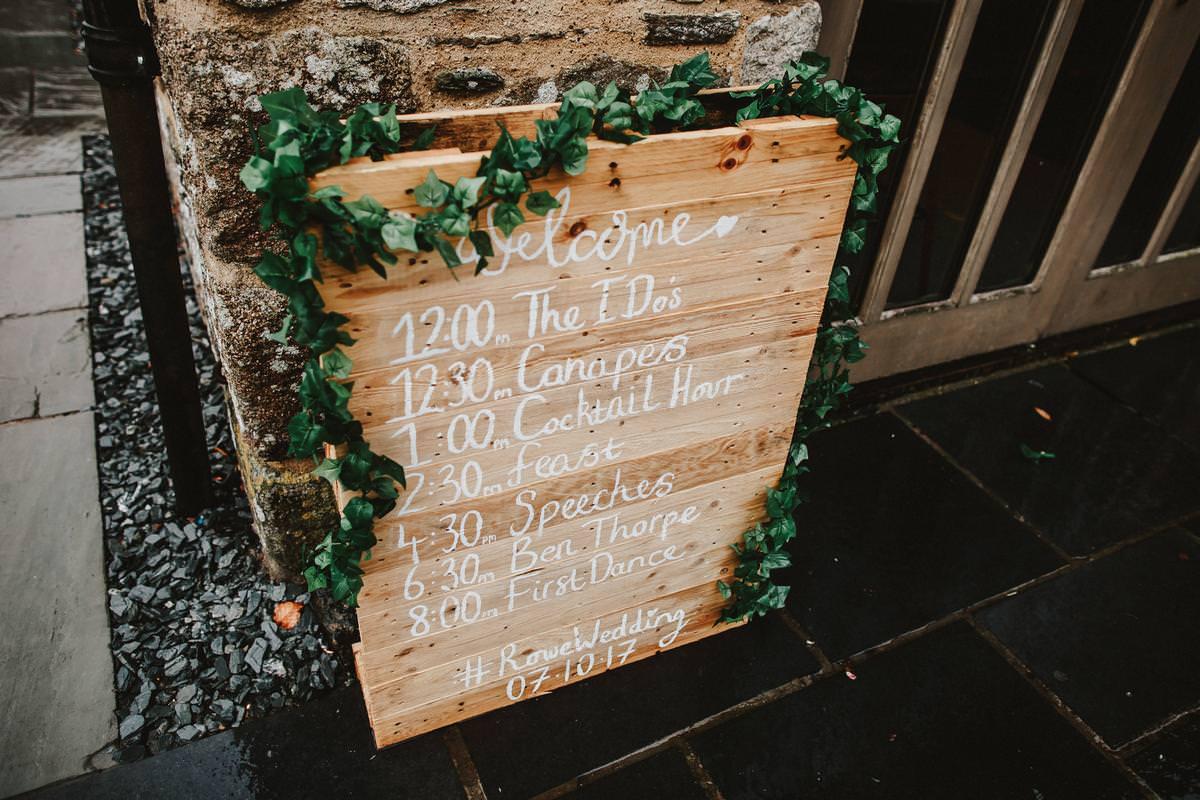 Welcome
12:00pm The I Do's
12:30pm Canapes
1:00pm Cocktail Hour
2:30pm Feast
4:30pm Speeches
6:30pm Ben Thorpe
8:00pm First Dance
#RoweWedding
07.10.17